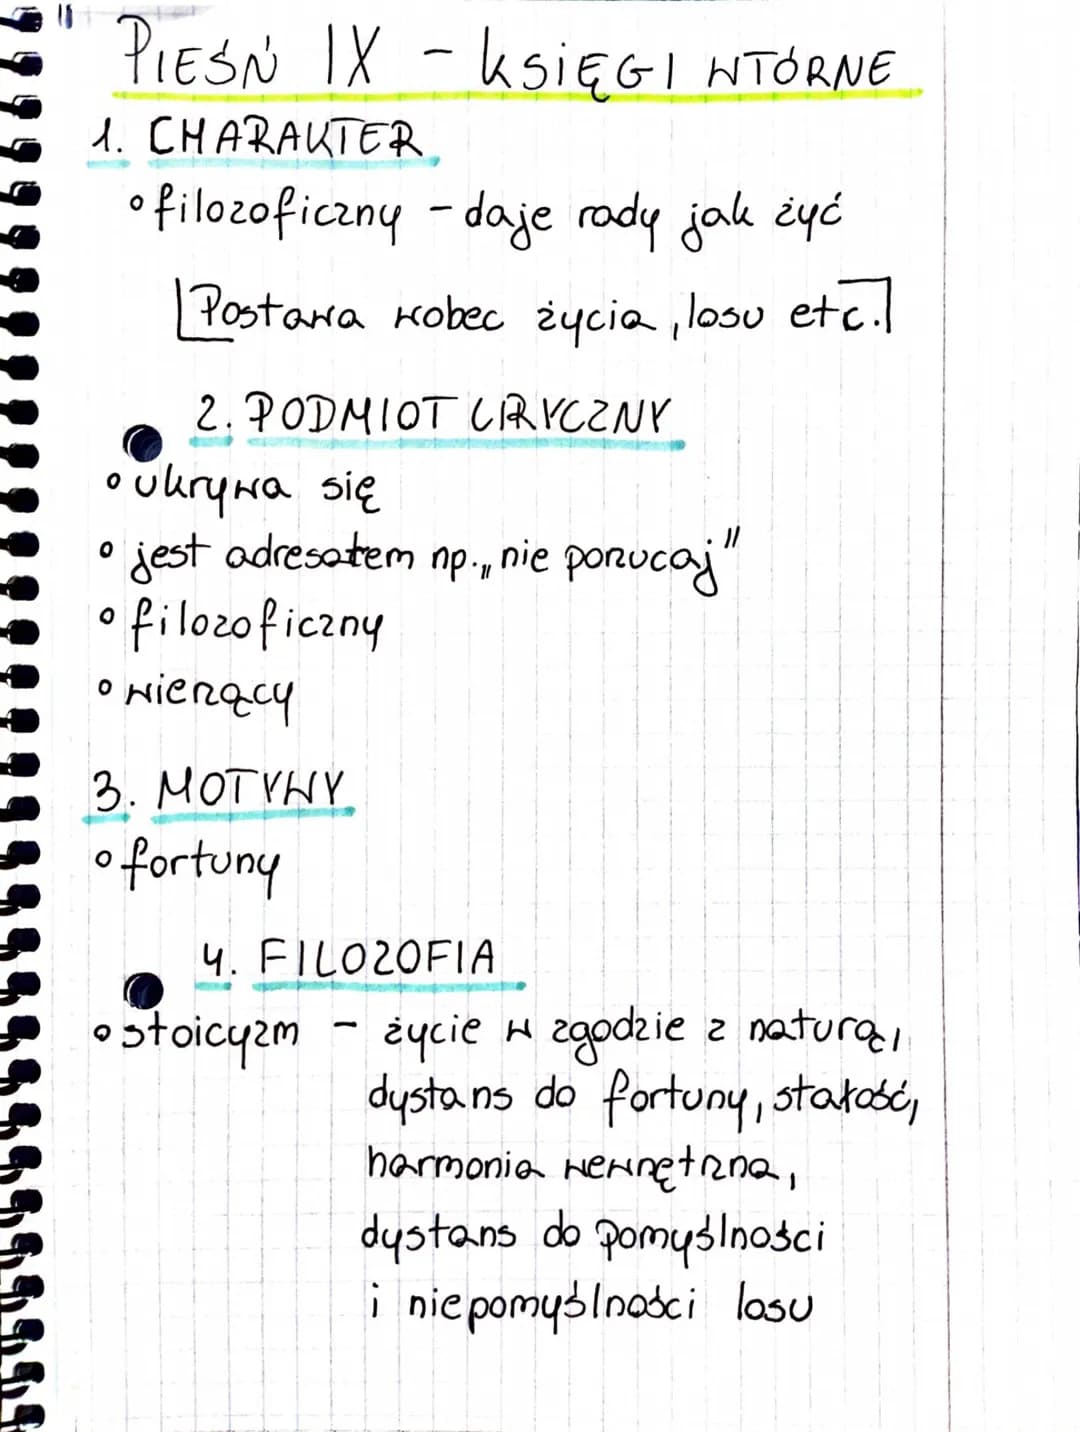 PIEŚŃ IX - KSIĘGI WTÓRNE
1. CHARAKTER
° filozoficzny - daje rady jak żyć
[Postawa wobec życia, losu etc.]
2. PODMIOT LIRYCZNY
° ukrywa się
° jest adresatem np. „nie porzucaj"
° filozoficzny
° wierzący
3. MOTYWY
° fortuny
4. FILOZOFIA
° stoicyzm - życie w zgodzie z naturą,
dystans do fortuny, stałość,
harmonia wewnętrzna,
dystans do pomyślności
i niepomyślności losu